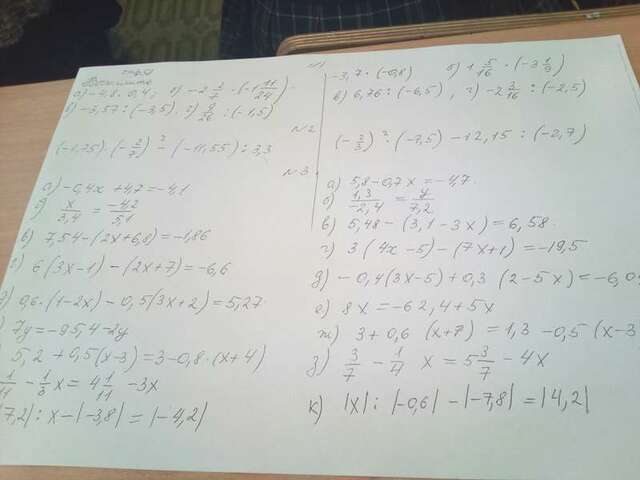 а) -4,8 · 0,4; б) -2 · (-1 11/24)
в) -3,57 : (-3,5) г) 9/26 : (-1,5)
№2
(-1,75) · (- )² - (-11,55) : 3,3
№3
а) -0,4x + 4,7 = -4,1
б) x/3,4 = -4,2/5,1
в) 7,54 - (2x + 6,8) = -1,86
6(3x - 1) - (2x + 7) = -6,6
0,6 · (1 - 2x) - 0,5(3x + 2) = 5,27
7y = -95,4 - 2y
5,2 + 0,5(x - 3) = 3 - 0,8 · (x + 4)
/11 - 1/3 x = 4 1/11 - 3x
7,2| : x - |-3,8| = |-4,2|
-3,7 · (-0,8) б) 1 5/16 · (-3 1/9)
в) 6,76 : (-6,5), г) -2 3/16 : (-2,5)
(-2/3)² : (-7,5) - 12,15 : (-2,7)
а) 5,8 - 0,7x = -4,7
б) 1,3/-2,4 = y/7,2
в) 5,48 - (3,1 - 3x) = 6,58
г) 3(4x - 5) - (7x + 1) = -19,5
д) -0,4(3x - 5) + 0,3(2 - 5x) = -6,0
е) 8x = -62,4 + 5x
ж) 3 + 0,6 (x + 7) = 1,3 - 0,5(x - 3
з) 3/7 - 1/4 x = 5 3/7 - 4x
к) |x| : |-0,6| - |-7,8| = |4,2|